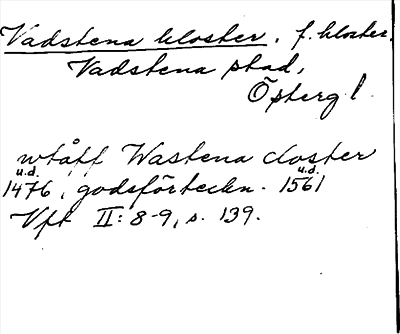 Vadstena kloster, f. kloster,
Vadstena stad,
Östergl.
wtåff Wastena closter
u.d. u.d.
1476, godsförteckn. 1561
Vft II: 8-9, s. 139.